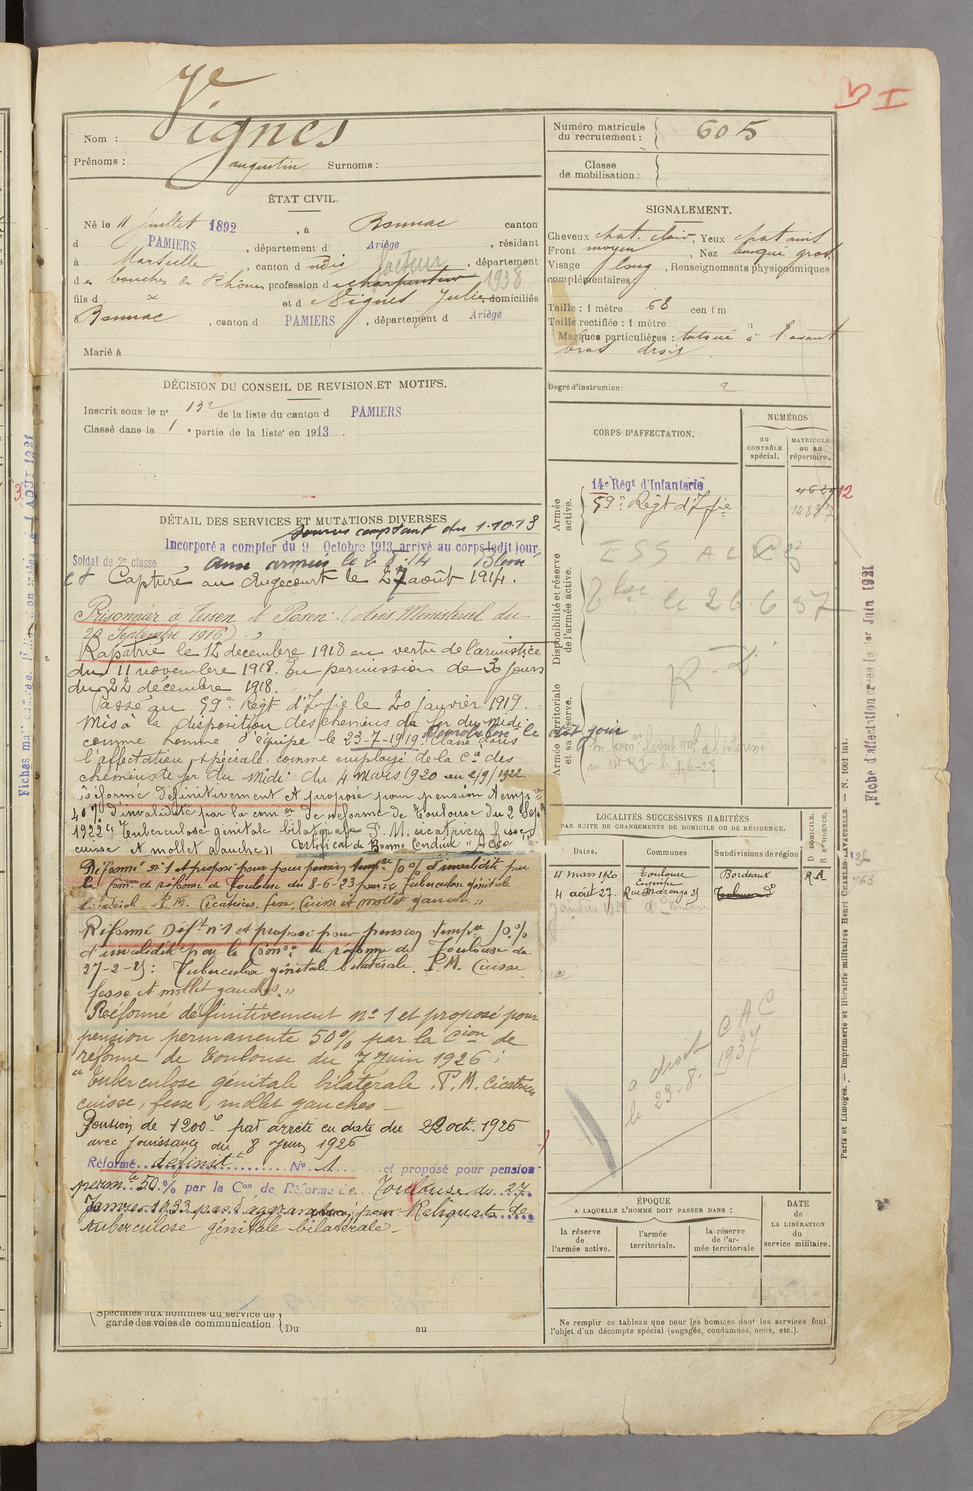 Vignes
Nom :
Prénoms : augustin Surnoms :
Numéro matricule du recrutement : 605
Classe de mobilisation :
ÉTAT CIVIL.
Né le 11 Juillet 1892, à Bonnac canton
d PAMIERS, département d Ariège, résidant
à Marseille, canton d udis, département
des bouches du Rhône, profession d charpentier facteur 1938
fils d x et d Vignes Julie domiciliés
à Bonnac, canton d PAMIERS, département d Ariège
Marié à
DÉCISION DU CONSEIL DE REVISION ET MOTIFS.
Inscrit sous le no 132 de la liste du canton d PAMIERS
Classé dans la 1 e partie de la liste en 1913.
DÉTAIL DES SERVICES ET MUTATIONS DIVERSES
Services comptant du 1.10.13
Incorporé à compter du 9 Octobre 1913 arrivé au corps ledit jour
Soldat de 2e classe, aux armées le 2.8.14 Blessé
et Capturé au Augecourt le 27 août 1914.
Prisonnier à
22 Septembre 1916)
Rapatrié le 12 décembre 1918 en vertu de l'armistice
du 11 novembre 1918. En permission de 30 jours
du 22 décembre 1918.
Passé au 59e Régt d'Infie le 20 janvier 1919.
Mis à la disposition des chemins de fer du midi
comme homme d'équipe le 23-7-1919. Démobilisé le dit jour
Classé dans
l'affectation spéciale comme employé de la Cie des
chemins de fer du Midi du 4 mars 1920 au 2/9/1922
Réformé définitivement et proposé pour pension temp.re
40% d'invalidité par la comon de réforme de Toulouse du 2 Sep
1922 "Tuberculose génitale bilatérale P. M. cicatrices fesse
cuisse et mollet gauche" Certificat de Bonne Conduite "Accordé"
Réformé no 1 et proposé pour pension tempre 10% d'invalidité par
la Comon de réforme de Toulouse du 8-6-23 pour : Tuberculose génitale
bilatéral P.M. Cicatrices, fesse, Cuisse et mollet gauche"
Réformé Déftno 1 et proposé pour pension tempre 10%
d'invalidité par la Comon de réforme de Toulouse du
27-2-25 : Tuberculose génitale bilatérale. P.M. Cuisse
fesse et mollet gauches."
Réformé définitivement no 1 et proposé pour
pension permanente 50% par la Cion de
réforme de Toulouse du 7 Juin 1926 :
"Tuberculose génitale bilatérale. P. M. cicatrices
cuisse, fesse, mollet gauches —
Pension de 1200 f par arrêté en date du 22 oct. 1926
avec jouissance du 8 Juin 1926
Réformé définitt No 1 et proposé pour pension
permte 50 % par la Con de Réforme de Toulouse du 27
Janvier 1933 pas d'aggravation, pour Reliquats de
tuberculose génitale bilatérale —
Spéciales aux hommes du service de
garde des voies de communication. Du au
SIGNALEMENT.
Cheveux chat. clair, Yeux chatains
Front moyen, Nez busqué gros
Visage long, Renseignements physionomiques
complémentaires :
Taille : 1 mètre 68 centim
Taille rectifiée : 1 mètre
Marques particulières : tatoué à l'avant
bras droit
Degré d'instruction : 2
CORPS D'AFFECTATION.
NUMÉROS
AU CONTRÔLE spécial.
MATRICULE ou au répertoire.
Armée active.
14e Régt d'Infanterie
59e Régt d'Infie
Disponibilité et réserve de l'armée active.
le 26.6 37
Armée territoriale et sa réserve.
LOCALITÉS SUCCESSIVES HABITÉES
PAR SUITE DE CHANGEMENTS DE DOMICILE OU DE RÉSIDENCE.
Dates. Communes. Subdivisions de région D DOMICILE. R RÉSIDENCE.
4 mars 1920 Toulouse Bordeaux R.A
4 août 27
a droit CAC
le 23-8. 1937
ÉPOQUE
A LAQUELLE L'HOMME DOIT PASSER DANS :
DATE DE LA LIBÉRATION du service militaire.
la réserve de l'armée active.
l'armée territoriale.
la réserve de l'armée territoriale
Ne remplir ce tableau que pour les hommes dont les services font
l'objet d'un décompte spécial (engagés, condamnés, omis, etc.).
Paris et Limoges. — Imprimerie et librairie militaires Henri CHARLES-LAVAUZELLE. — N. 1001 int.
Fiche d'affectation créée le 1er Juin 1921